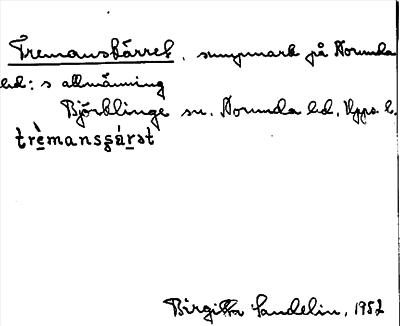 Tremanskärret, sumpmark på Norunda
hd:s allmänning
Björklinge sn. Norunda hd, Upps. l.
trè̱mansʂá̱ṟət
Birgitta Sandelin, 1952